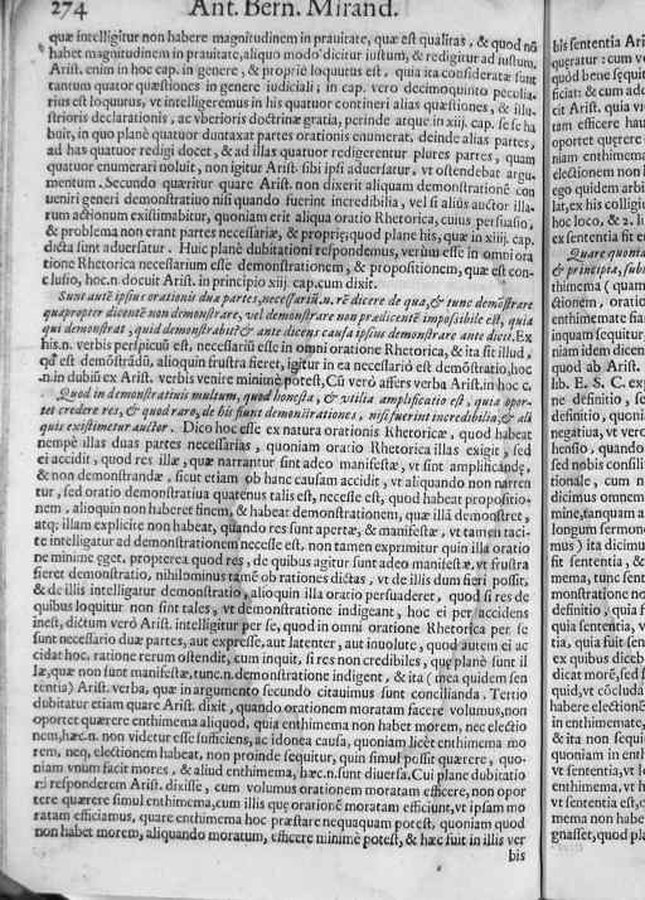 274 Ant. Bern. Mirand.
quæ intelligitur non habere magnitudinem in prauitate, quæ est qualitas, & quod nõ
habet magnitudinem in prauitate, aliquo modo dicitur iustum, & redigitur ad iustum.
Arist. enim in hoc cap. in genere, & propriè loquutus est, quia ita consideratæ sunt
tantum quatuor quæstiones in genere iudiciali; in cap. vero decimoquinto peculia-
rius est loquutus, vt intelligeremus in his quatuor contineri alias quæstiones, & illu-
strioris declarationis, ac vberioris doctrinæ gratia, perinde atque in xiij. cap. se se ha
buit, in quo planè quatuor duntaxat partes orationis enumerat, deinde alias partes,
ad has quatuor redigi docet, & ad illas quatuor redigerentur plures partes, quam
quatuor enumerari noluit, non igitur Arist. sibi ipsi aduersatur, vt ostendebat argu-
mentum. Secundo quæritur quare Arist. non dixerit aliquam demonstrationẽ con
ueniri generi demonstratiuo nisi quando fuerint incredibilia, vel si alius auctor illa-
rum actionum existimabitur, quoniam erit aliqua oratio Rhetorica, cuius persuasio,
& problema non erant partes necessariæ, & proprię; quod plane his, quæ in xiiij. cap.
dicta sunt aduersatur. Huic planè dubitationi respondemus, verùm esse in omni ora
tione Rhetorica necessarium esse demonstrationem, & propositionem, quæ est con-
clusio, hoc.n. docuit Arist. in principio xiij. cap. cum dixit.
Sunt autẽ ipsius orationis duæ partes, necessariũ.n. rẽ dicere de qua, & tunc demõstrare
quapropter dicentẽ non demonstrare, vel demonstrare non prædicentẽ impossibile est, quia
qui demonstrat, quid demonstrabit? & ante dicens causa ipsius demonstrare ante dicit. Ex
his.n. verbis perspicuũ est, necessariũ esse in omni oratione Rhetorica, & ita sit illud,
qd est demõstrãdũ, alioquin frustra fieret, igitur in ea necessariò est demõstratio, hoc
.n. in dubiũ ex Arist. verbis venire minimè potest, Cũ verò affers verba Arist. in hoc c.
Quod in demonstratiuis multum, quod honesta, & vtilia amplificatio est, quia opor-
tet credere res, & quod raro, de his fiunt demonstrationes, nisi fuerint incredibilia, & ali
quis existimetur auctor. Dico hoc esse ex natura orationis Rhetoricæ, quod habeat
nempè illas duas partes necessarias, quoniam oratio Rhetorica illas exigit, sed
ei accidit, quod res illæ, quæ narrantur sint adeo manifestæ, vt sint amplificandę,
& non demonstrandæ, sicut etiam ob hanc causam accidit, vt aliquando non narren
tur, sed oratio demonstratiua quatenus talis est, necesse est, quod habeat propositio-
nem, alioquin non haberet finem, & habeat demonstrationem, quæ illã demonstret,
atq; illam explicite non habeat, quando res sunt apertæ, & manifestæ, vt tamen taci-
te intelligatur ad demonstrationem necesse est, non tamen exprimitur quin illa oratio
ne minime ęget, propterea quod res, de quibus agitur sunt adeo manifestæ, vt frustra
fieret demonstratio, nihilominus tamẽ ob rationes dictas, vt de illis dum fieri possit,
& de illis intelligatur demonstratio, alioquin illa oratio persuaderet, quod si res de
quibus loquitur non sint tales, vt demonstratione indigeant, hoc ei per accidens
inest, dictum verò Arist. intelligitur per se, quod in omni oratione Rhetorica per se
sunt necessario duæ partes, aut expresse, aut latenter, aut inuolute, quod autem ei ac
cidat hoc, ratione rerum ostendit, cum inquit, si res non credibiles, quę planè sunt il
læ, quæ non sunt manifestæ, tunc.n. demonstratione indigent, & ita (mea quidem sen
tentia) Arist. verba, quæ in argumento secundo citauimus sunt concilianda. Tertio
dubitatur etiam quare Arist. dixit, quando orationem moratam facere volumus, non
oportet quærere enthimema aliquod, quia enthimema non habet morem, nec electio
nem, hæc.n. non videtur esse sufficiens, ac idonea causa, quoniam licèt enthimema mo
rem, neq; electionem habeat, non proinde sequitur, quin simul possit quærere, quo-
niam vnum facit mores, & aliud enthimema, hæc.n. sunt diuersa. Cui plane dubitatio
ni responderem Arist. dixisse, cum volumus orationem moratam efficere, non opor
tere quærere simul enthimema, cum illis quę orationẽ moratam efficiunt, vt ipsam mo
ratam efficiamus, quare enthimema hoc præstare nequaquam potest, quoniam quod
non habet morem, aliquando moratum, efficere minimè potest, & hæc fuit in illis ver
bis
bis sententia Ari
queratur: cum v
quòd bene sęquit
ficiat: & cum ade
cit Arist. quia vi
tam efficere hau
oportet quęrere
niam enthimema
electionem non h
ego quidem arbi
lat, ex his colligi
hoc loco, & 2. li
ex sententia fit e
Quare quonia
& principia, subi
thimema (quam
ctionem, oratio
enthimemate fia
inquam sequitur
niam idem dicen
quod ab Arist.
lib. E. S. C. exp
ne definitio, se
definitio, quoni
negatiua, vt verc
hensio, quando
sed nobis consili
tionale, cum n
dicimus omnem
mine, tanquam a
longum sermone
mus) ita dicimu
fit sententia, &
mema, tunc sent
monstratione no
definitio, quia f
quia sententia, v
tia, quia fuit sen
ex quibus diceb
dicat morẽ, sed
quid, vt cõcluda
habere electionẽ
in enthimemate,
& ita non sequi
quoniam in enth
vt sententia, vt l
enthimema, vt h
vt sententia est, c
mema non habe
gnasset, quod pla